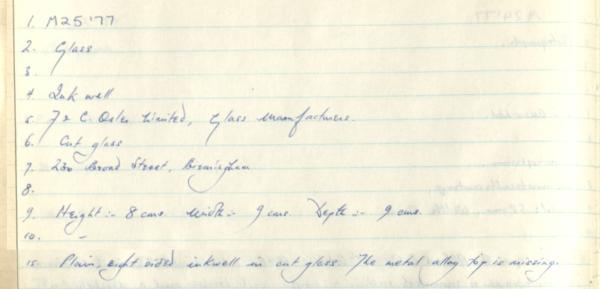 1. M25 '77
2. Glass
3.
4. Ink well
5. F & C. Osler Limited, Glass Manufacturers.
6. Cut glass
7. 230 Broad Street, Birmingham
8.
9. Height :- 8 cms. Width :- 9 cms. Depth :- 9 cms.
10. -
15. Plain, eight sided inkwell in cut glass. The metal alloy top is missing.